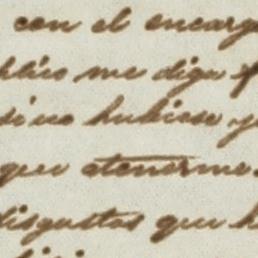 con el encarg
blico me diga
si no hubiese y
que atenerme.
disgustos que h